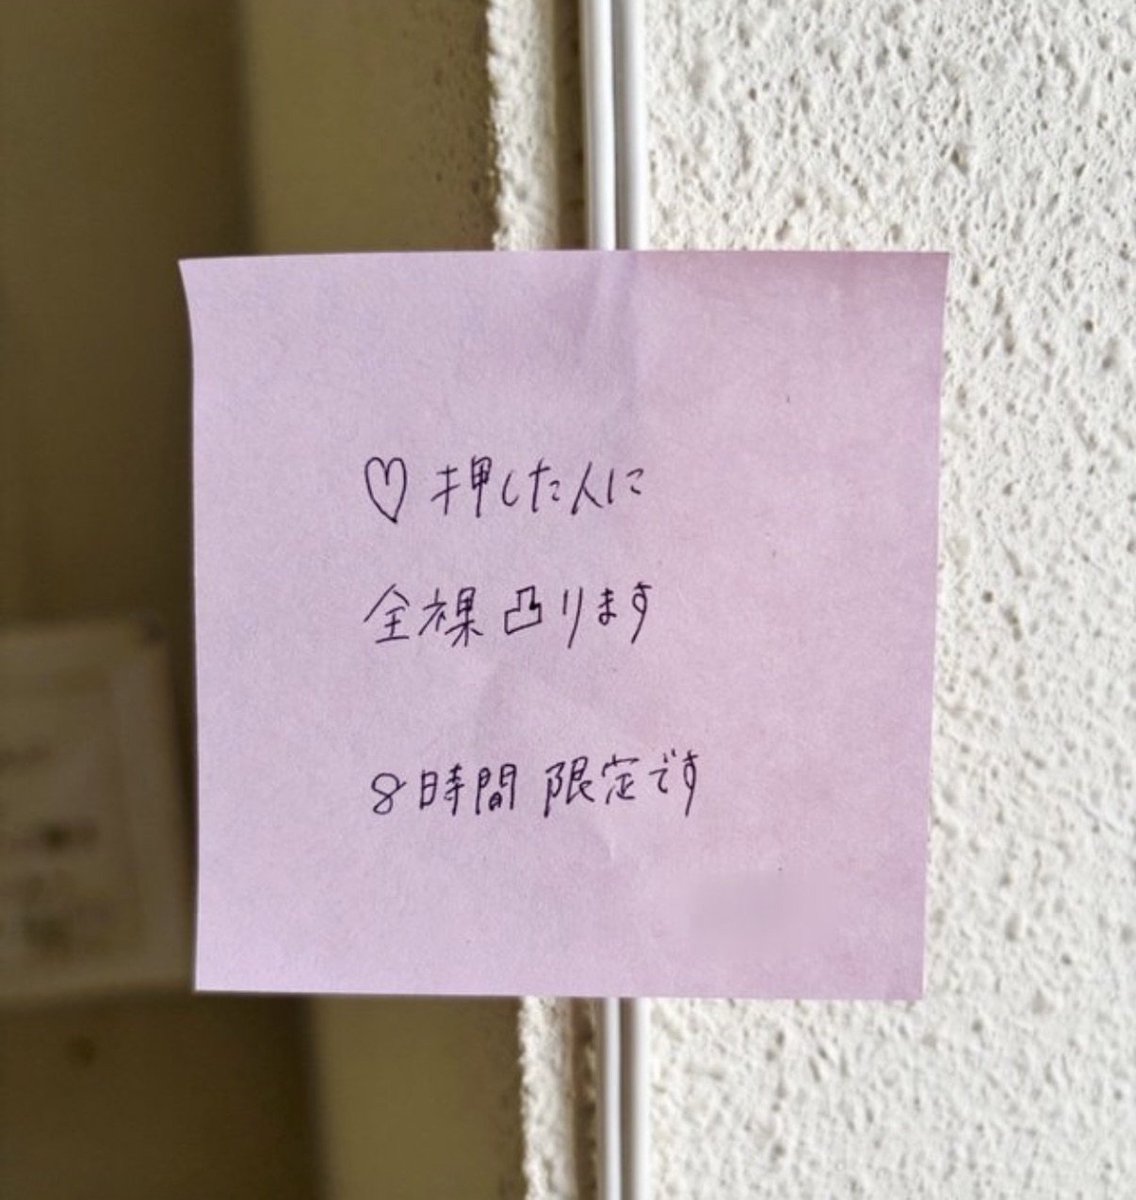 ♡押した人に
全裸凸ります
8時間限定です